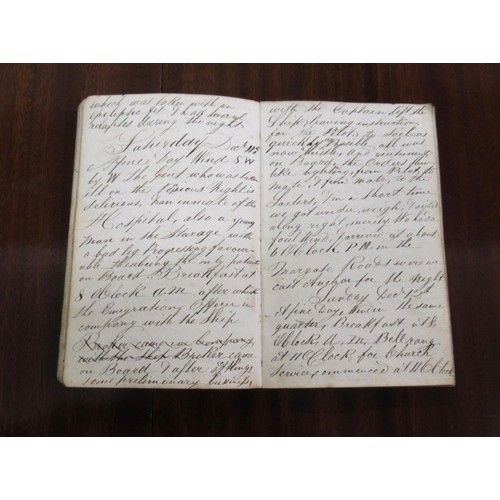 whom was taken with an
epileptic fit & had several
relapses during the night.
Saturday Dec 12th
A fine Day Wind S. W
by W The Guest who was taken
ill on the Previous Night is
delirious, & an inmate of the
Hospital, also a young
man in the Starage with
a bad leg Progressing favour
able these being the only patients
on Board. Breakfast at
8 OClock a.m after which
the Emigration Officer in
company with the Ship
Broker came in company
with the Ship Broker came
on Board & after
some prelimenary business
with the Captain left the
Ship, leaving instructions
for the Pilot, to
quickly Possible all was
now, bustle, and excitement
on Board, the Orders flew
like lightning, from Pilot, to
Mate, & from mate, to the
Sailors, In a short time
we got under, weigh, & sailed
along right, merrily We had a
fair Wind, & arrived at about
6 OClock P.M. in the
Margate Roads were we
cast Anchor for the Night
Sunday Dec 13th
A fine Day, thin the same
quarter, Breakfast at 8
OClock, A. M, Bell rang
at 11 OClock for Church
Service, commenced at 11 OClock